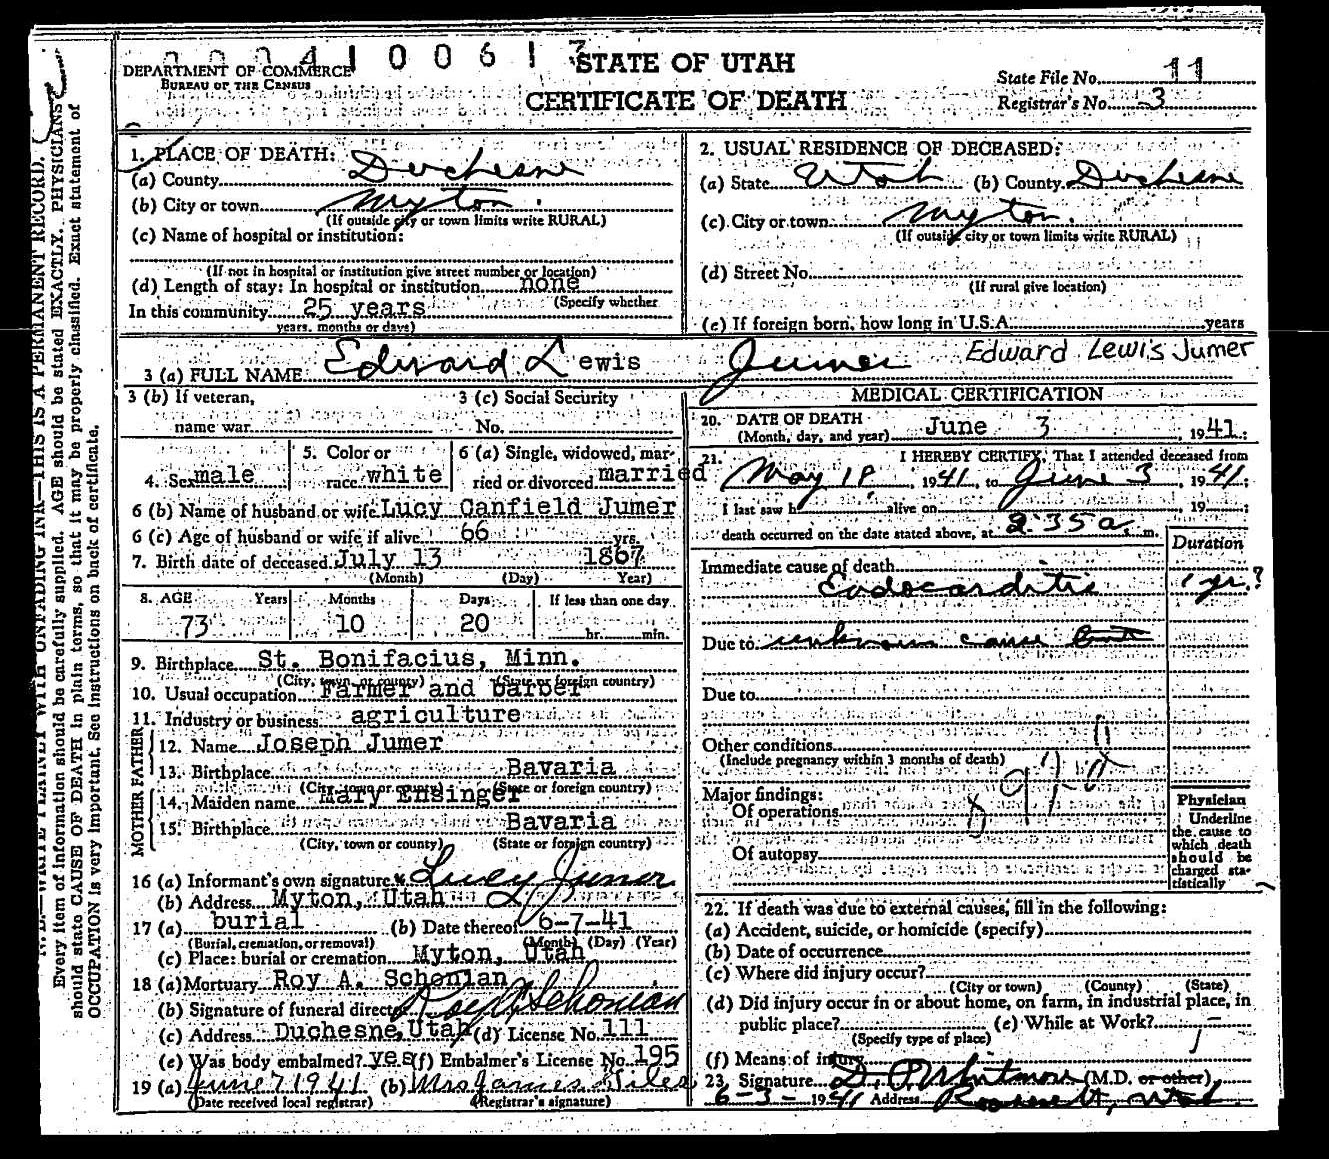 0 0 0 4 1 0 0 6 1 3
STATE OF UTAH
CERTIFICATE OF DEATH
DEPARTMENT OF COMMERCE
BUREAU OF THE CENSUS
State File No. 11
Registrar's No. 3
N. B.—WRITE PLAINLY WITH UNFADING INK—THIS IS A PERMANENT RECORD.
Every item of information should be carefully supplied. AGE should be stated EXACTLY. PHYSICIANS
should state CAUSE OF DEATH in plain terms, so that it may be properly classified. Exact statement of
OCCUPATION is very important. See instructions on back of certificate.
1. PLACE OF DEATH:
(a) County Duchesne
(b) City or town Myton.
(If outside city or town limits write RURAL)
(c) Name of hospital or institution:
(If not in hospital or institution give street number or location)
(d) Length of stay: In hospital or institution none
(Specify whether
In this community 25 years
years, months or days)
2. USUAL RESIDENCE OF DECEASED:
(a) State Utah (b) County Duchesne
(c) City or town Myton.
(If outside city or town limits write RURAL)
(d) Street No.
(If rural give location)
(e) If foreign born, how long in U.S.A. years
3 (a) FULL NAME Edward Lewis Jumer Edward Lewis Jumer
3 (b) If veteran,
name war
3 (c) Social Security
No.
4. Sex male
5. Color or
race white
6 (a) Single, widowed, mar-
ried or divorced married
6 (b) Name of husband or wife Lucy Canfield Jumer
6 (c) Age of husband or wife if alive 66 yrs.
7. Birth date of deceased July 13 1867
(Month) (Day) Year)
8. AGE Years Months Days If less than one day
73 10 20 hr. min.
9. Birthplace St. Bonifacius, Minn.
(City, town, or county) (State or foreign country)
10. Usual occupation Farmer and barber
11. Industry or business agriculture
FATHER
12. Name Joseph Jumer
13. Birthplace Bavaria
(City, town or county) (State or foreign country)
MOTHER
14. Maiden name Mary Ensinger
15. Birthplace Bavaria
(City, town or county) (State or foreign country)
16 (a) Informant's own signature x Lucy Jumer
(b) Address Myton, Utah
17 (a) burial (b) Date thereof 6-7-41
(Burial, cremation, or removal) (Month) (Day) (Year)
(c) Place: burial or cremation Myton, Utah
18 (a) Mortuary Roy A. Schonian
(b) Signature of funeral director Roy A Schonian
(c) Address Duchesne, Utah (d) License No. 111
(e) Was body embalmed? yes (f) Embalmer's License No. 195
19 (a) June 7 1941 (b) Mrs James Giles
(Date received local registrar) (Registrar's signature)
MEDICAL CERTIFICATION
20. DATE OF DEATH
(Month, day, and year) June 3 1941.
21. I HEREBY CERTIFY, That I attended deceased from
May 18, 1941, to June 3, 1941;
I last saw h alive on , 19 ;
death occurred on the date stated above, at 2:35 a. m.
Duration
Immediate cause of death
Endocarditis 1 yr.?
Due to unknown cause
Due to
Other conditions
(Include pregnancy within 3 months of death)
Major findings:
Of operations
Of autopsy
Physician
Underline
the cause to
which death
should be
charged sta-
tistically
22. If death was due to external causes, fill in the following:
(a) Accident, suicide, or homicide (specify)
(b) Date of occurrence
(c) Where did injury occur?
(City or town) (County) (State)
(d) Did injury occur in or about home, on farm, in industrial place, in
public place? (e) While at Work?
(Specify type of place)
(f) Means of injury
23. Signature D. P. Whitmore (M.D. or other)
6-3-1941 Address Roosevelt, Utah